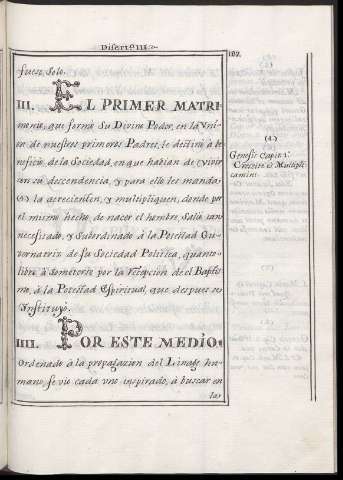 Disert.º III.
107.
fuese solo.
III. EL PRIMER MATRI
monio, que formó Su Divino Poder, en la Vni-
on de nuestros primeros Padres, le destinó à be-
neficio de la Sociedad, en que habian de vivir
con su descendencia, y para ello les manda
la acrecienten, y multipliquen, donde por
el mismo hecho, de nacer el hombre, Salió tan
necesitado, y Subordinado à la Potestad Gu-
vernatriz de su Sociedad Politica, quanto
libre à someterse por la recepcion de el Baptis-
mo, à la Potestad Espiritual, que despues se
Instituyó.
IIII. POR ESTE MEDIO
Ordenado à la propagazion del Linage hu-
mano, se vio cada vno inspirado, à buscar en
las
(1.)
Genesis Capit. 1.º
Crescite et Multipli-
camini.